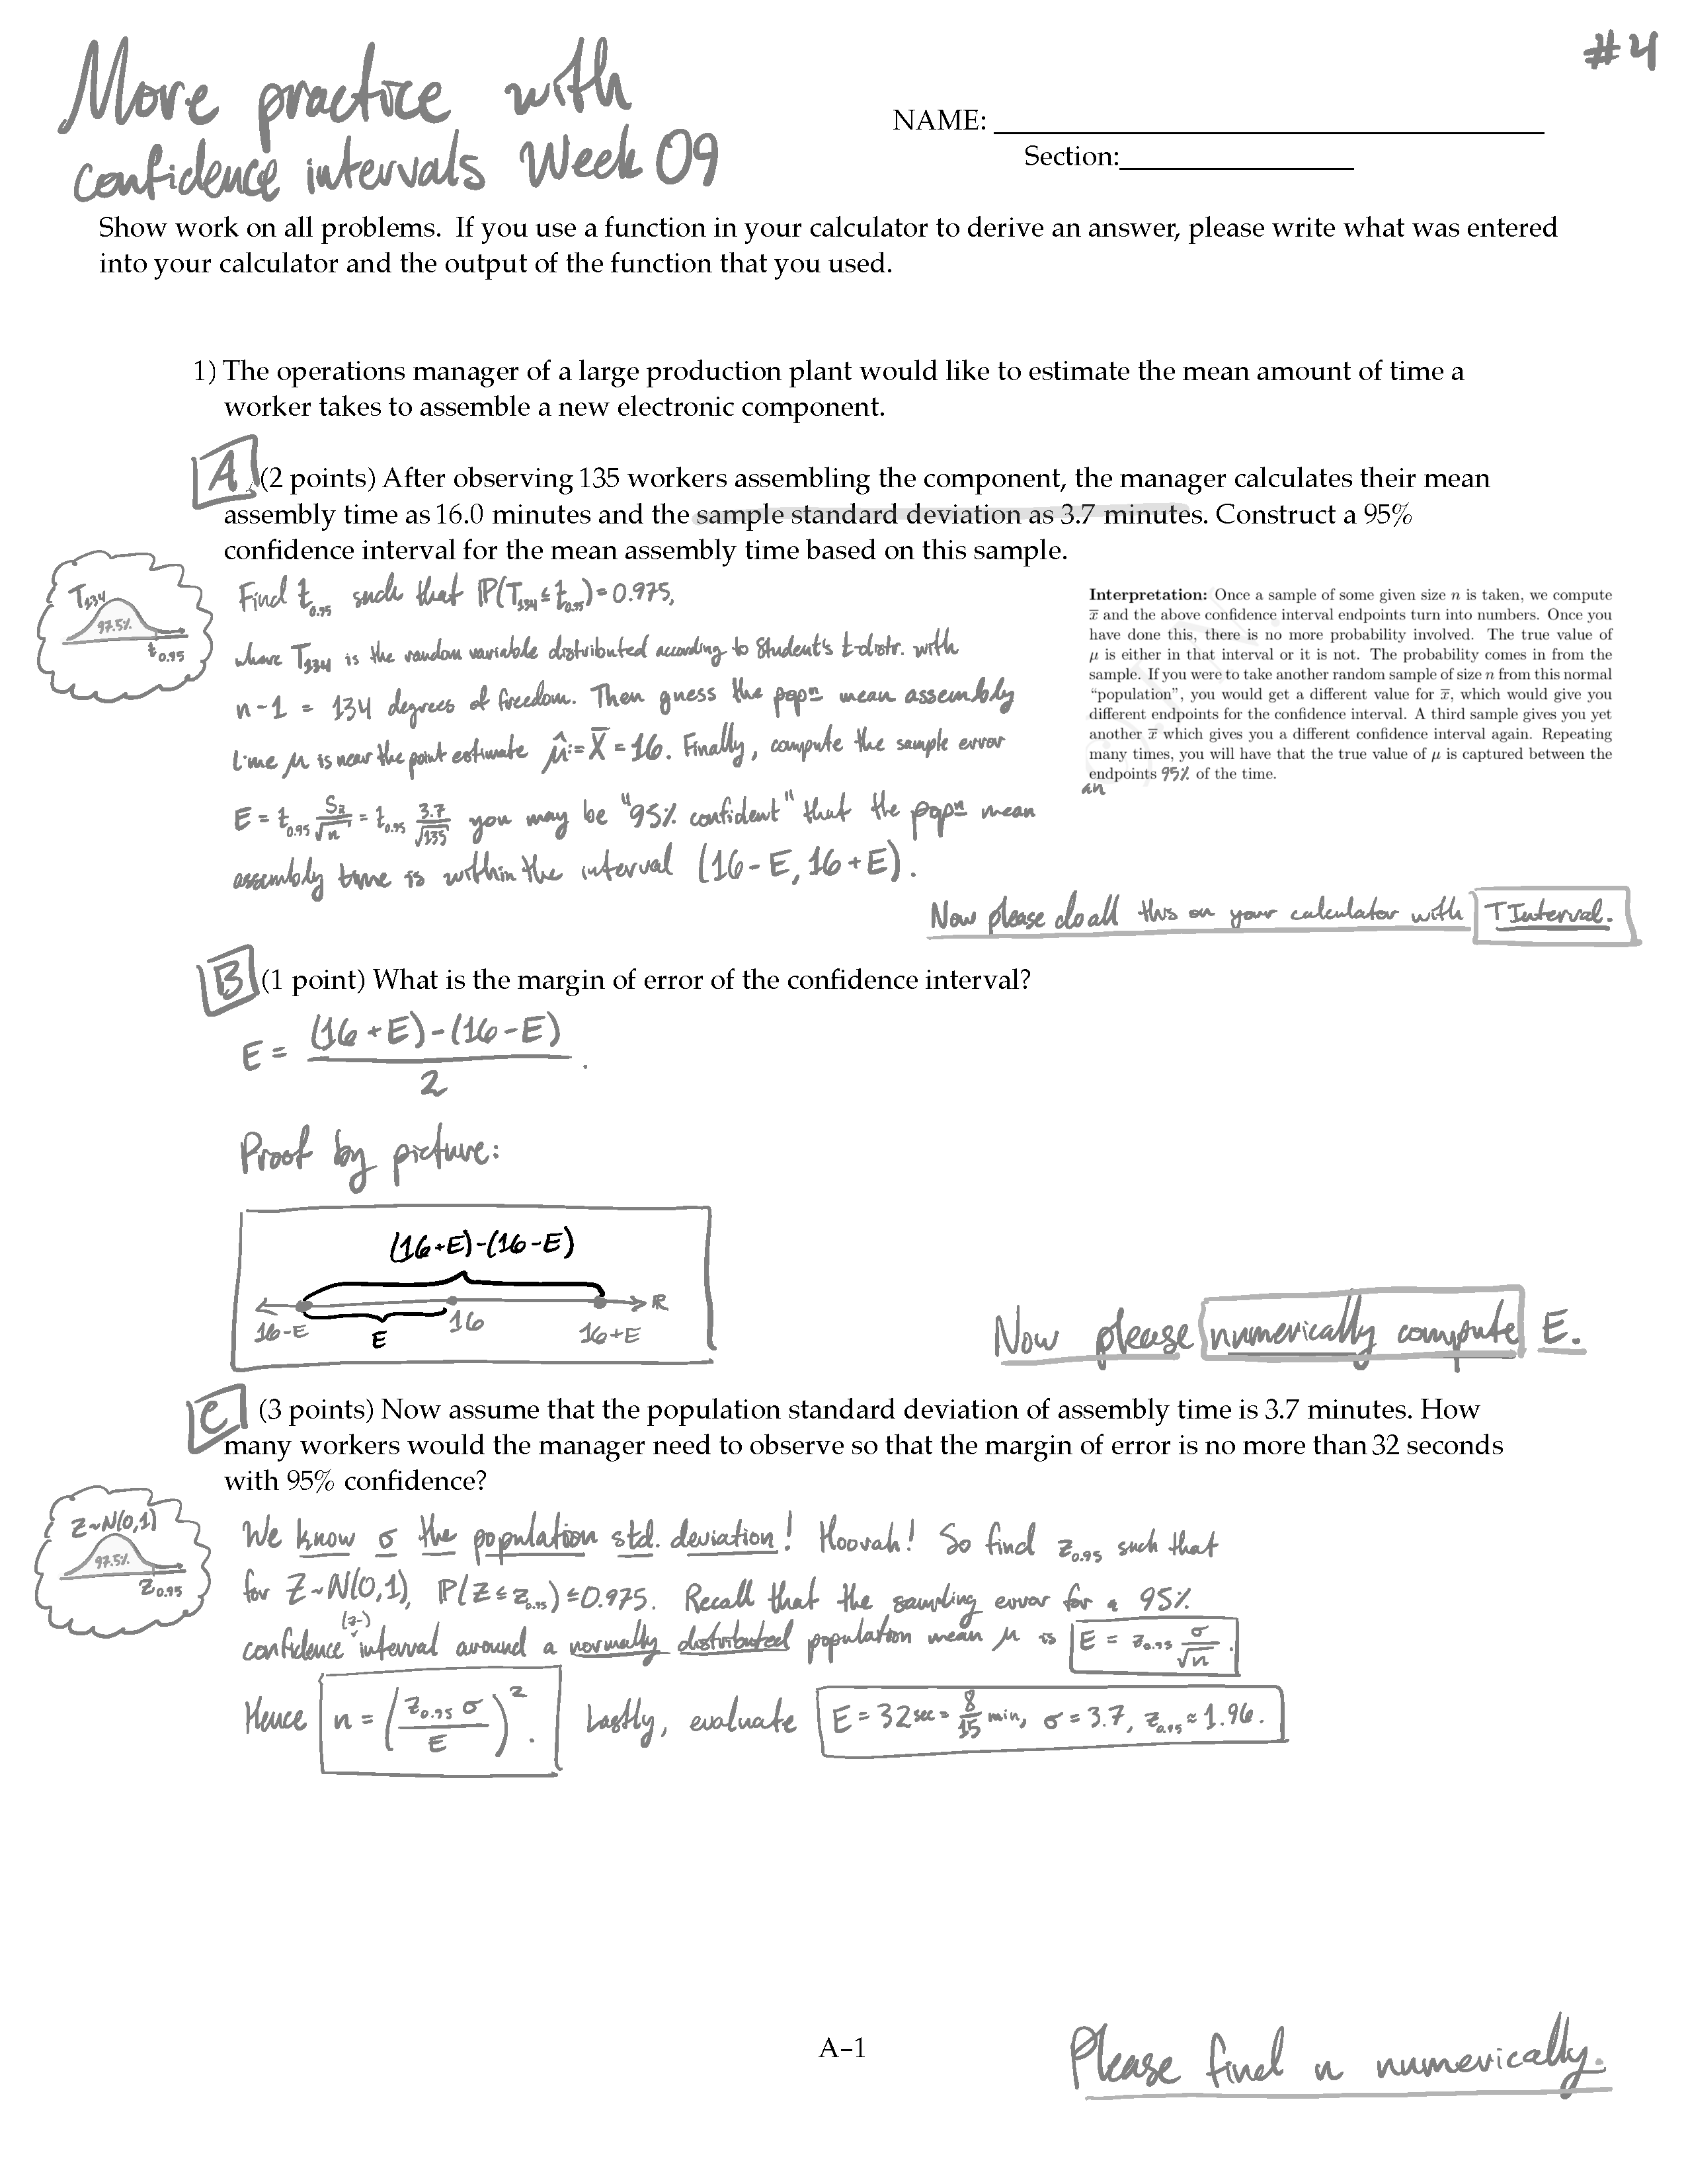 More practice with
confidence intervals Week 09
#4
NAME:
Section:
Show work on all problems. If you use a function in your calculator to derive an answer, please write what was entered
into your calculator and the output of the function that you used.
1) The operations manager of a large production plant would like to estimate the mean amount of time a
worker takes to assemble a new electronic component.
A (2 points) After observing 135 workers assembling the component, the manager calculates their mean
assembly time as 16.0 minutes and the sample standard deviation as 3.7 minutes. Construct a 95%
confidence interval for the mean assembly time based on this sample.
T₁₃₄
97.5%
t₀.₉₅
Find t₀.₉₅ such that ℙ(T₁₃₄ ≤ t₀.₉₅) = 0.975,
where T₁₃₄ is the random variable distributed according to Student's t-distr. with
n-1 = 134 degrees of freedom. Then guess the popⁿ mean assembly
time μ is near the point estimate μ̂ := X̄ = 16. Finally, compute the sample error
E = t₀.₉₅ Sₓ/√n = t₀.₉₅ 3.7/√135 you may be "95% confident" that the popⁿ mean
assembly time is within the interval (16-E, 16+E).
Interpretation: Once a sample of some given size n is taken, we compute
x̄ and the above confidence interval endpoints turn into numbers. Once you
have done this, there is no more probability involved. The true value of
μ is either in that interval or it is not. The probability comes in from the
sample. If you were to take another random sample of size n from this normal
“population”, you would get a different value for x̄, which would give you
different endpoints for the confidence interval. A third sample gives you yet
another x̄ which gives you a different confidence interval again. Repeating
many times, you will have that the true value of μ is captured between the
endpoints 95% of the time.
an
Now please do all this on your calculator with TInterval.
B (1 point) What is the margin of error of the confidence interval?
E = (16+E)-(16-E) / 2 .
Proof by picture:
(16+E)-(16-E)
16-E E 16 16+E ℝ
Now please numerically compute E.
C (3 points) Now assume that the population standard deviation of assembly time is 3.7 minutes. How
many workers would the manager need to observe so that the margin of error is no more than 32 seconds
with 95% confidence?
Z~N(0,1)
97.5%
z₀.₉₅
We know σ the population std. deviation! Hoorah! So find z₀.₉₅ such that
for Z~N(0,1), ℙ(Z ≤ z₀.₉₅) ≤ 0.975. Recall that the sampling error for a 95%
confidence (z-) interval around a normally distributed population mean μ is E = z₀.₉₅ σ/√n .
Hence n = (z₀.₉₅ σ / E)² . Lastly, evaluate E = 32 sec = 8/15 min, σ = 3.7, z₀.₉₅ ≈ 1.96.
A–1
Please find n numerically.